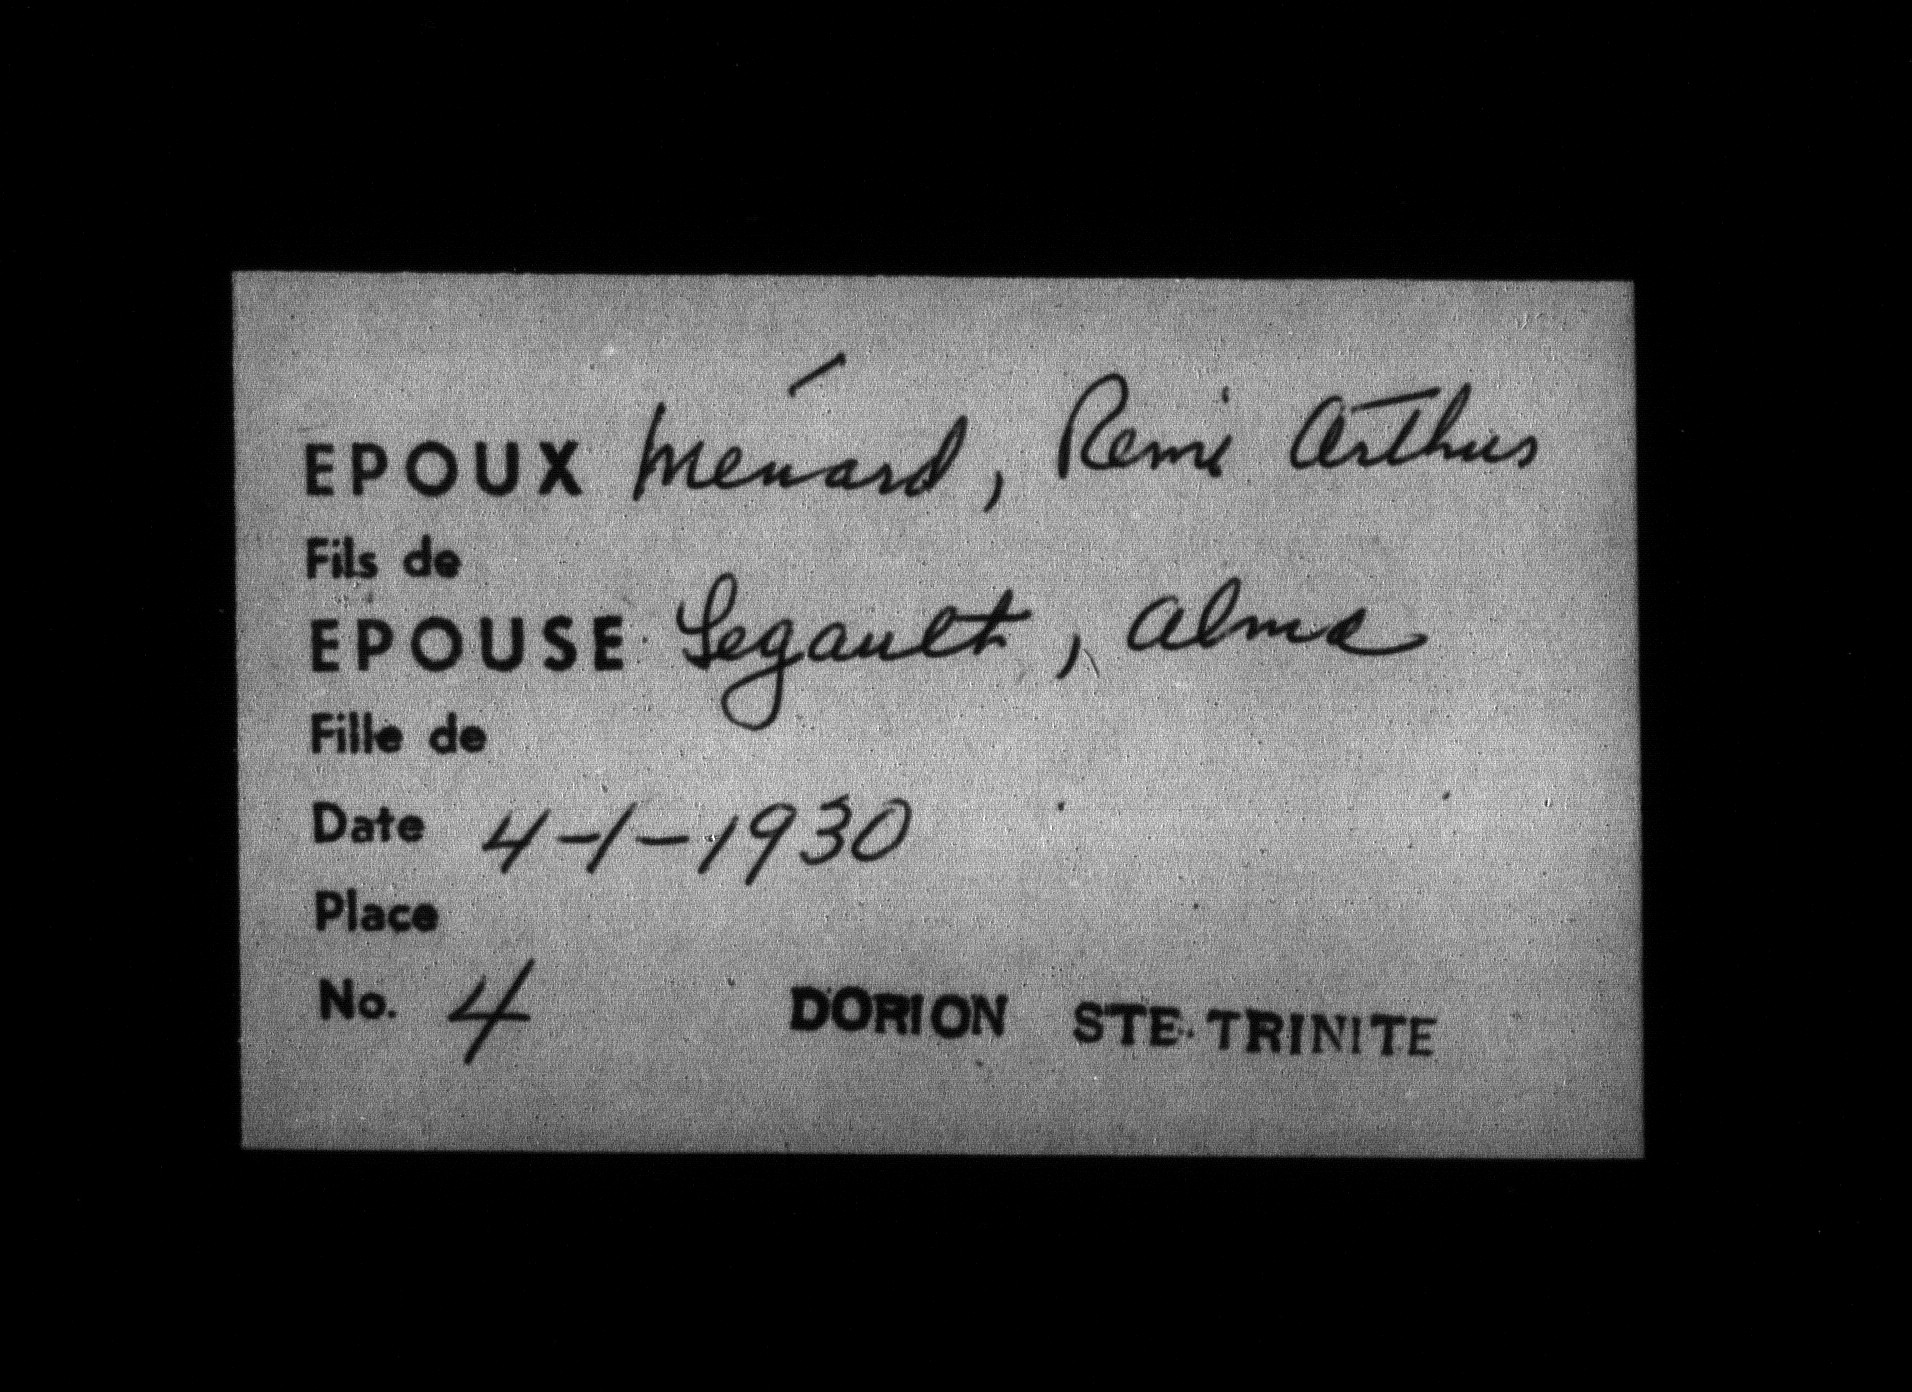 EPOUX Ménard, Remi Arthur
Fils de
EPOUSE Legault, Alma
Fille de
Date 4-1-1930
Place
No. 4 DORION STE. TRINITE